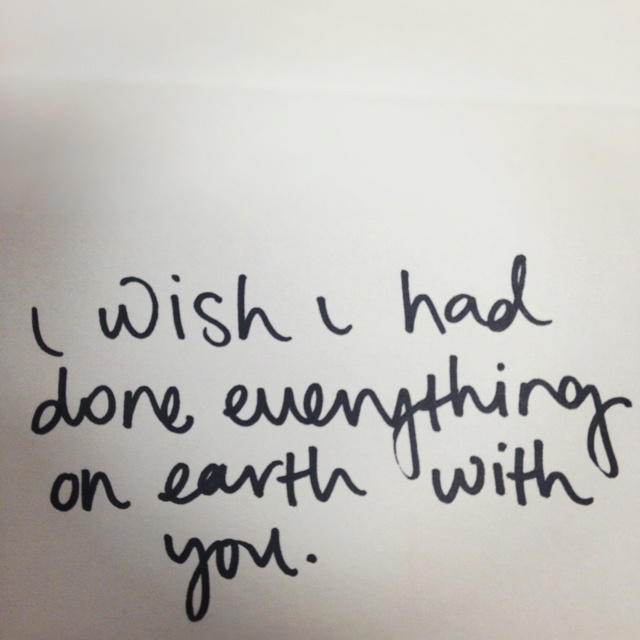 i wish i had
done everything
on earth with
you.